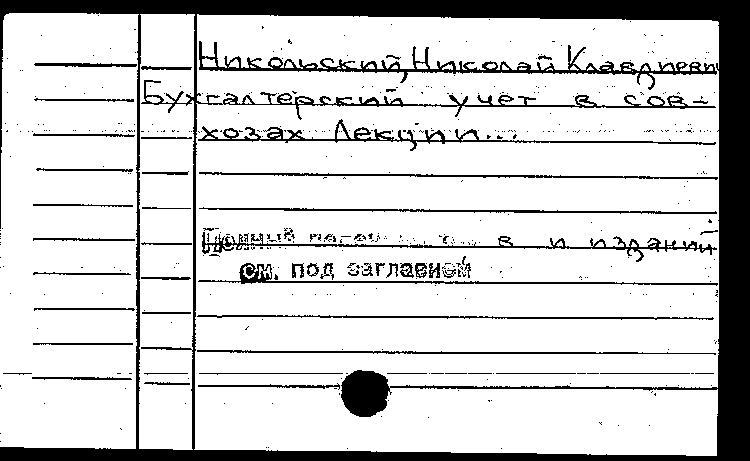 Никольский, Николай Клавдиевич
Бухгалтерский учет в сов-
хозах Лекции...
Полный в и изданий
см. под заглавием